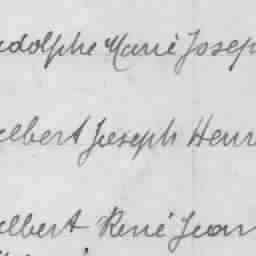 adolphe Marie Josep
elbert Joseph Henr
albert René Jean